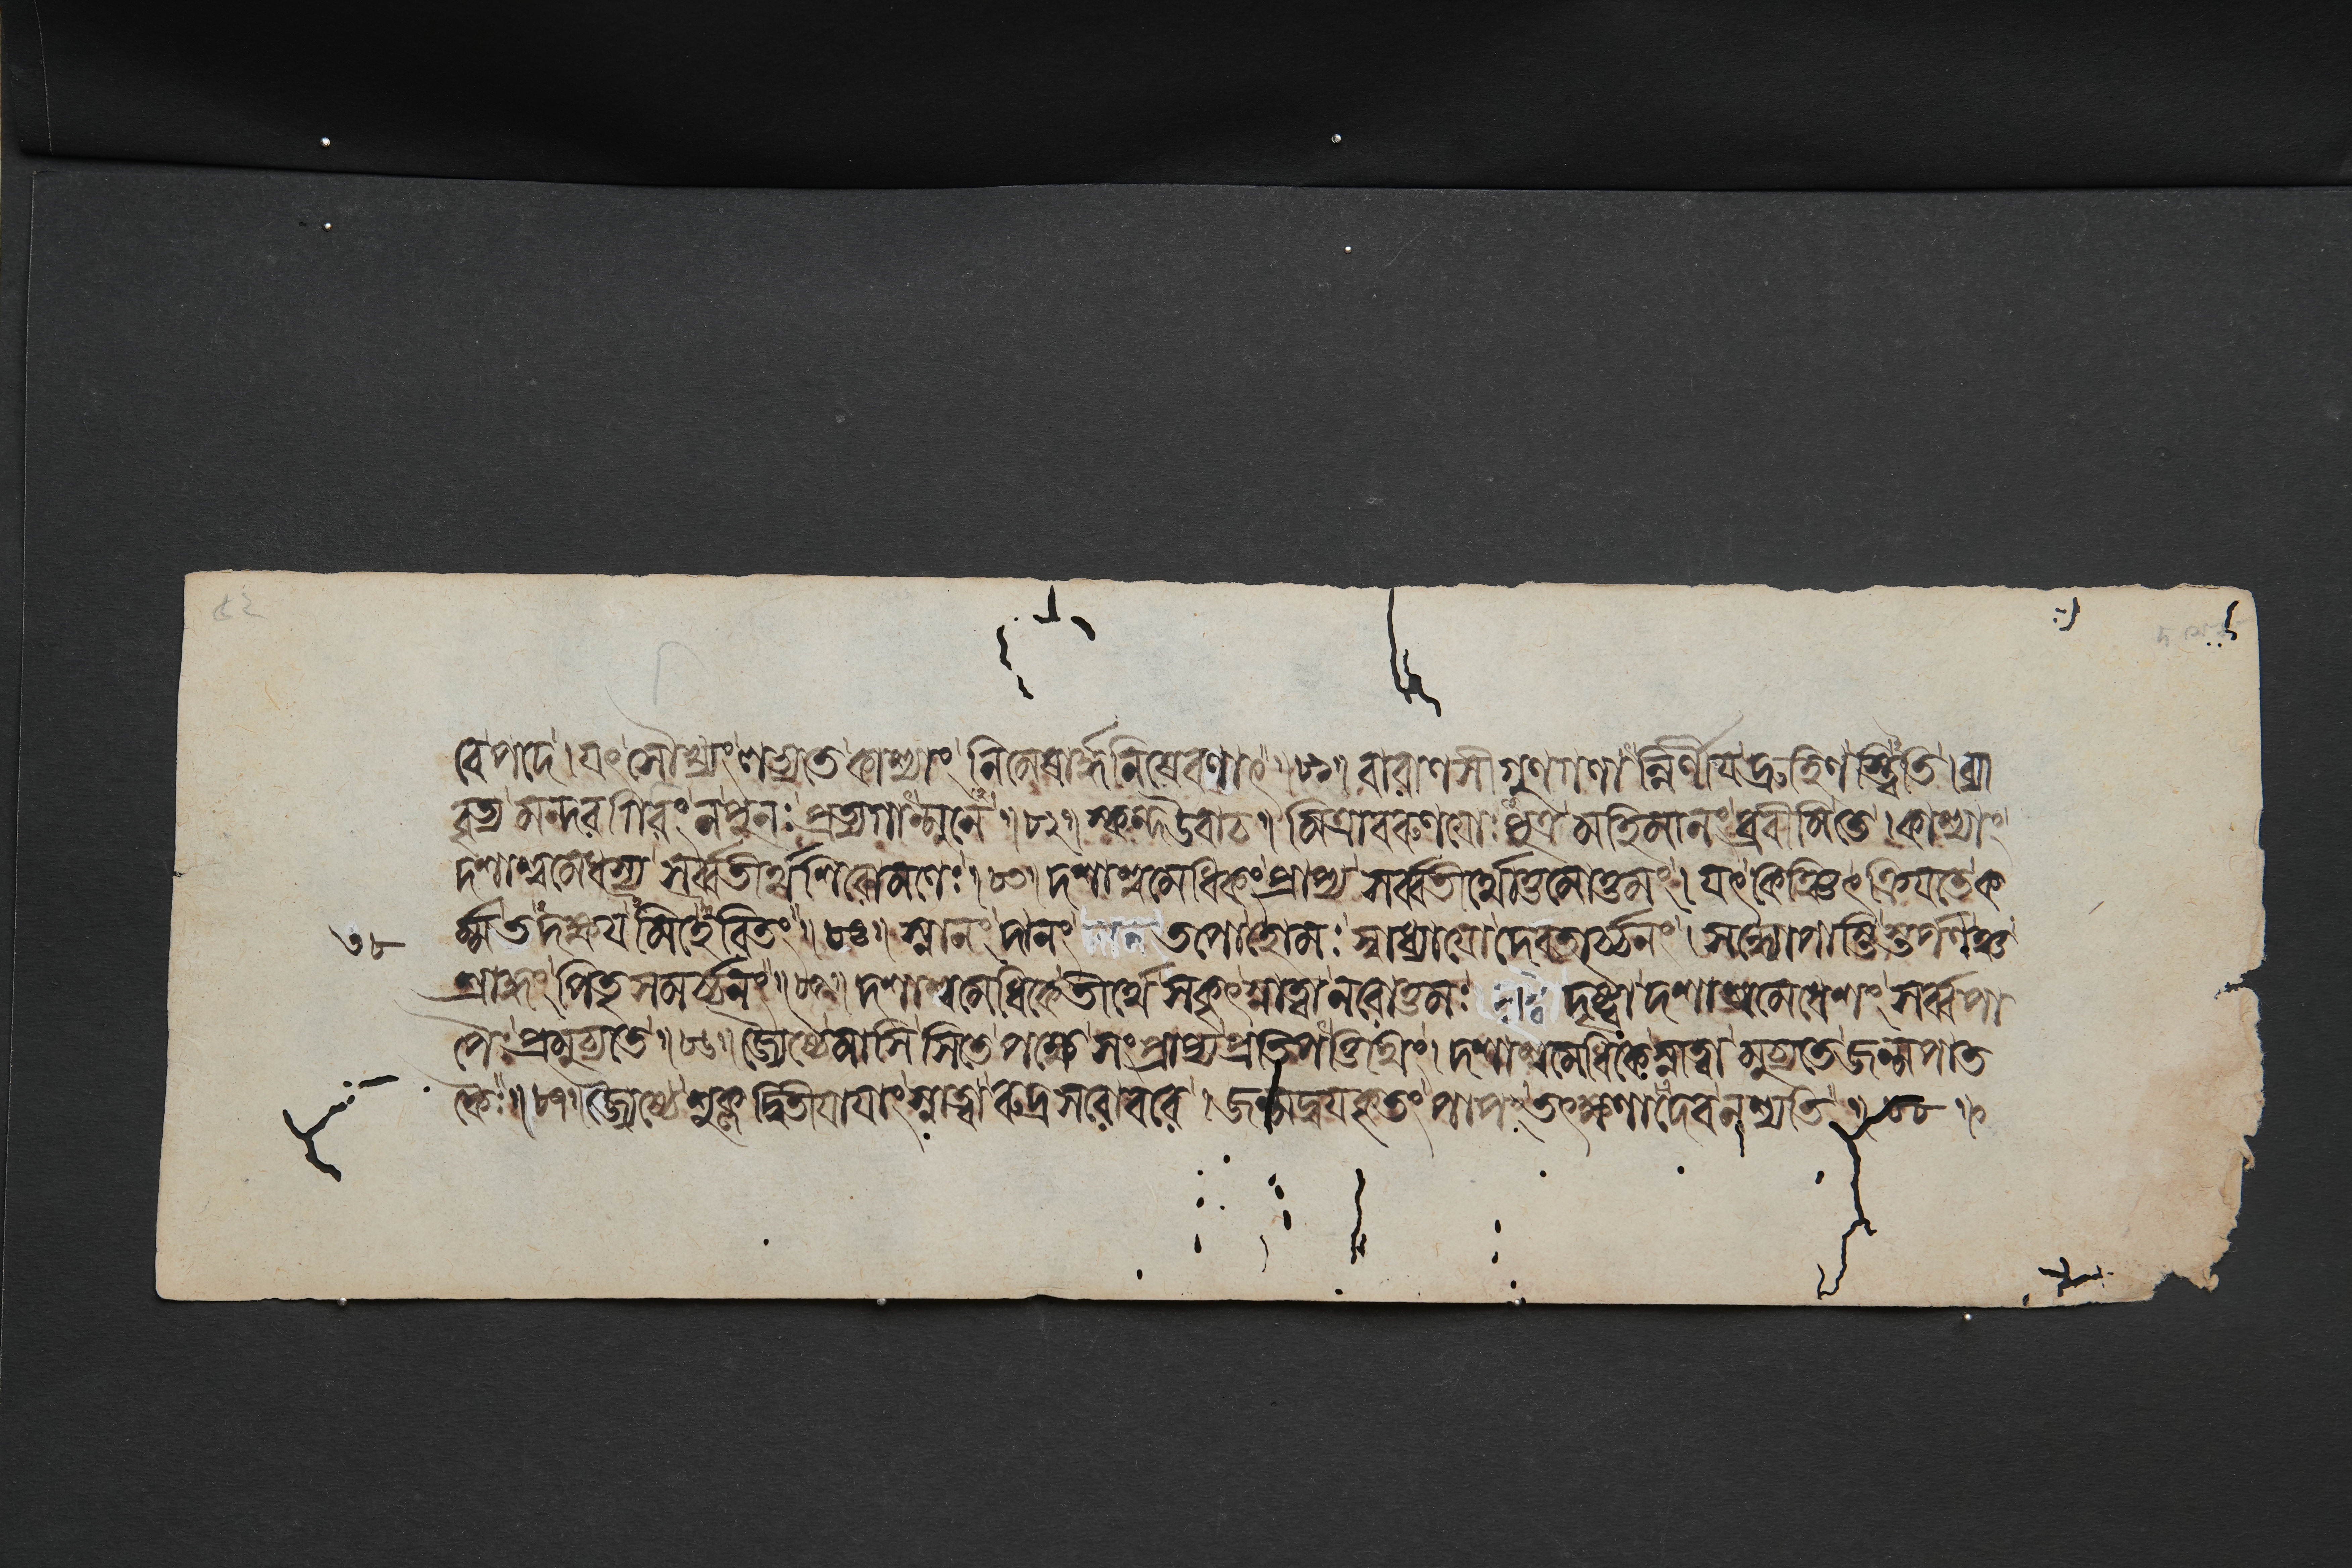 বেপদে। যৎ সৌখ্যং লভ্যতে কাশ্যাং নিমেষার্দ্ধনিষেবণাৎ॥৮১॥ বারাণসীগুণগণান্নির্ণীয় দ্রুহিণস্ত্বিতি। ব্যা
বৃত্য মন্দরগিরিং ন পুনঃ প্রত্যগান্মুনে॥৮২॥ স্কন্দ উবাচ॥ মিত্রাবরুণয়োঃ পুত্র মহিমানং ব্রবীমি তে। কাশ্যাং
দশাশ্বমেধস্য সর্ব্বতীর্থশিরোমণেঃ॥৮৩॥ দশাশ্বমেধিকং প্রাপ্য সর্ব্বতীর্থোত্তমোত্তমং। যৎ কিঞ্চিৎ ক্রিয়তে ক
র্ম্ম তদক্ষয়মিহেরিতং॥৮৪॥ স্নানং দানং তপো হোমঃ স্বাধ্যায়ো দেবতার্চ্চনং। সন্ধ্যোপাস্তিস্তর্পণঞ্চ
শ্রাদ্ধং পিতৃসমর্চ্চনং॥৮৫॥ দশাশ্বমেধিকে তীর্থে সকৃৎ স্নাত্বা নরোত্তমঃ দৃষ্ট্বা দশাশ্বমেধেশং সর্ব্বপা
পৈঃ প্রমুচ্যতে॥৮৬॥ জ্যেষ্ঠে মাসি সিতে পক্ষে সংপ্রাপ্য প্রতিপত্তিথিং। দশাশ্বমেধিকে স্নাত্বা মুচ্যতে জন্মপাত
কৈঃ॥৮৭॥ জ্যৈষ্ঠে শুক্লদ্বিতীয়ায়াং স্নাত্বা রুদ্রসরোবরে। জন্মদ্বয়কৃতং পাপং তৎক্ষণাদেব নশ্যতি॥৮৮॥
৩৮
৫২